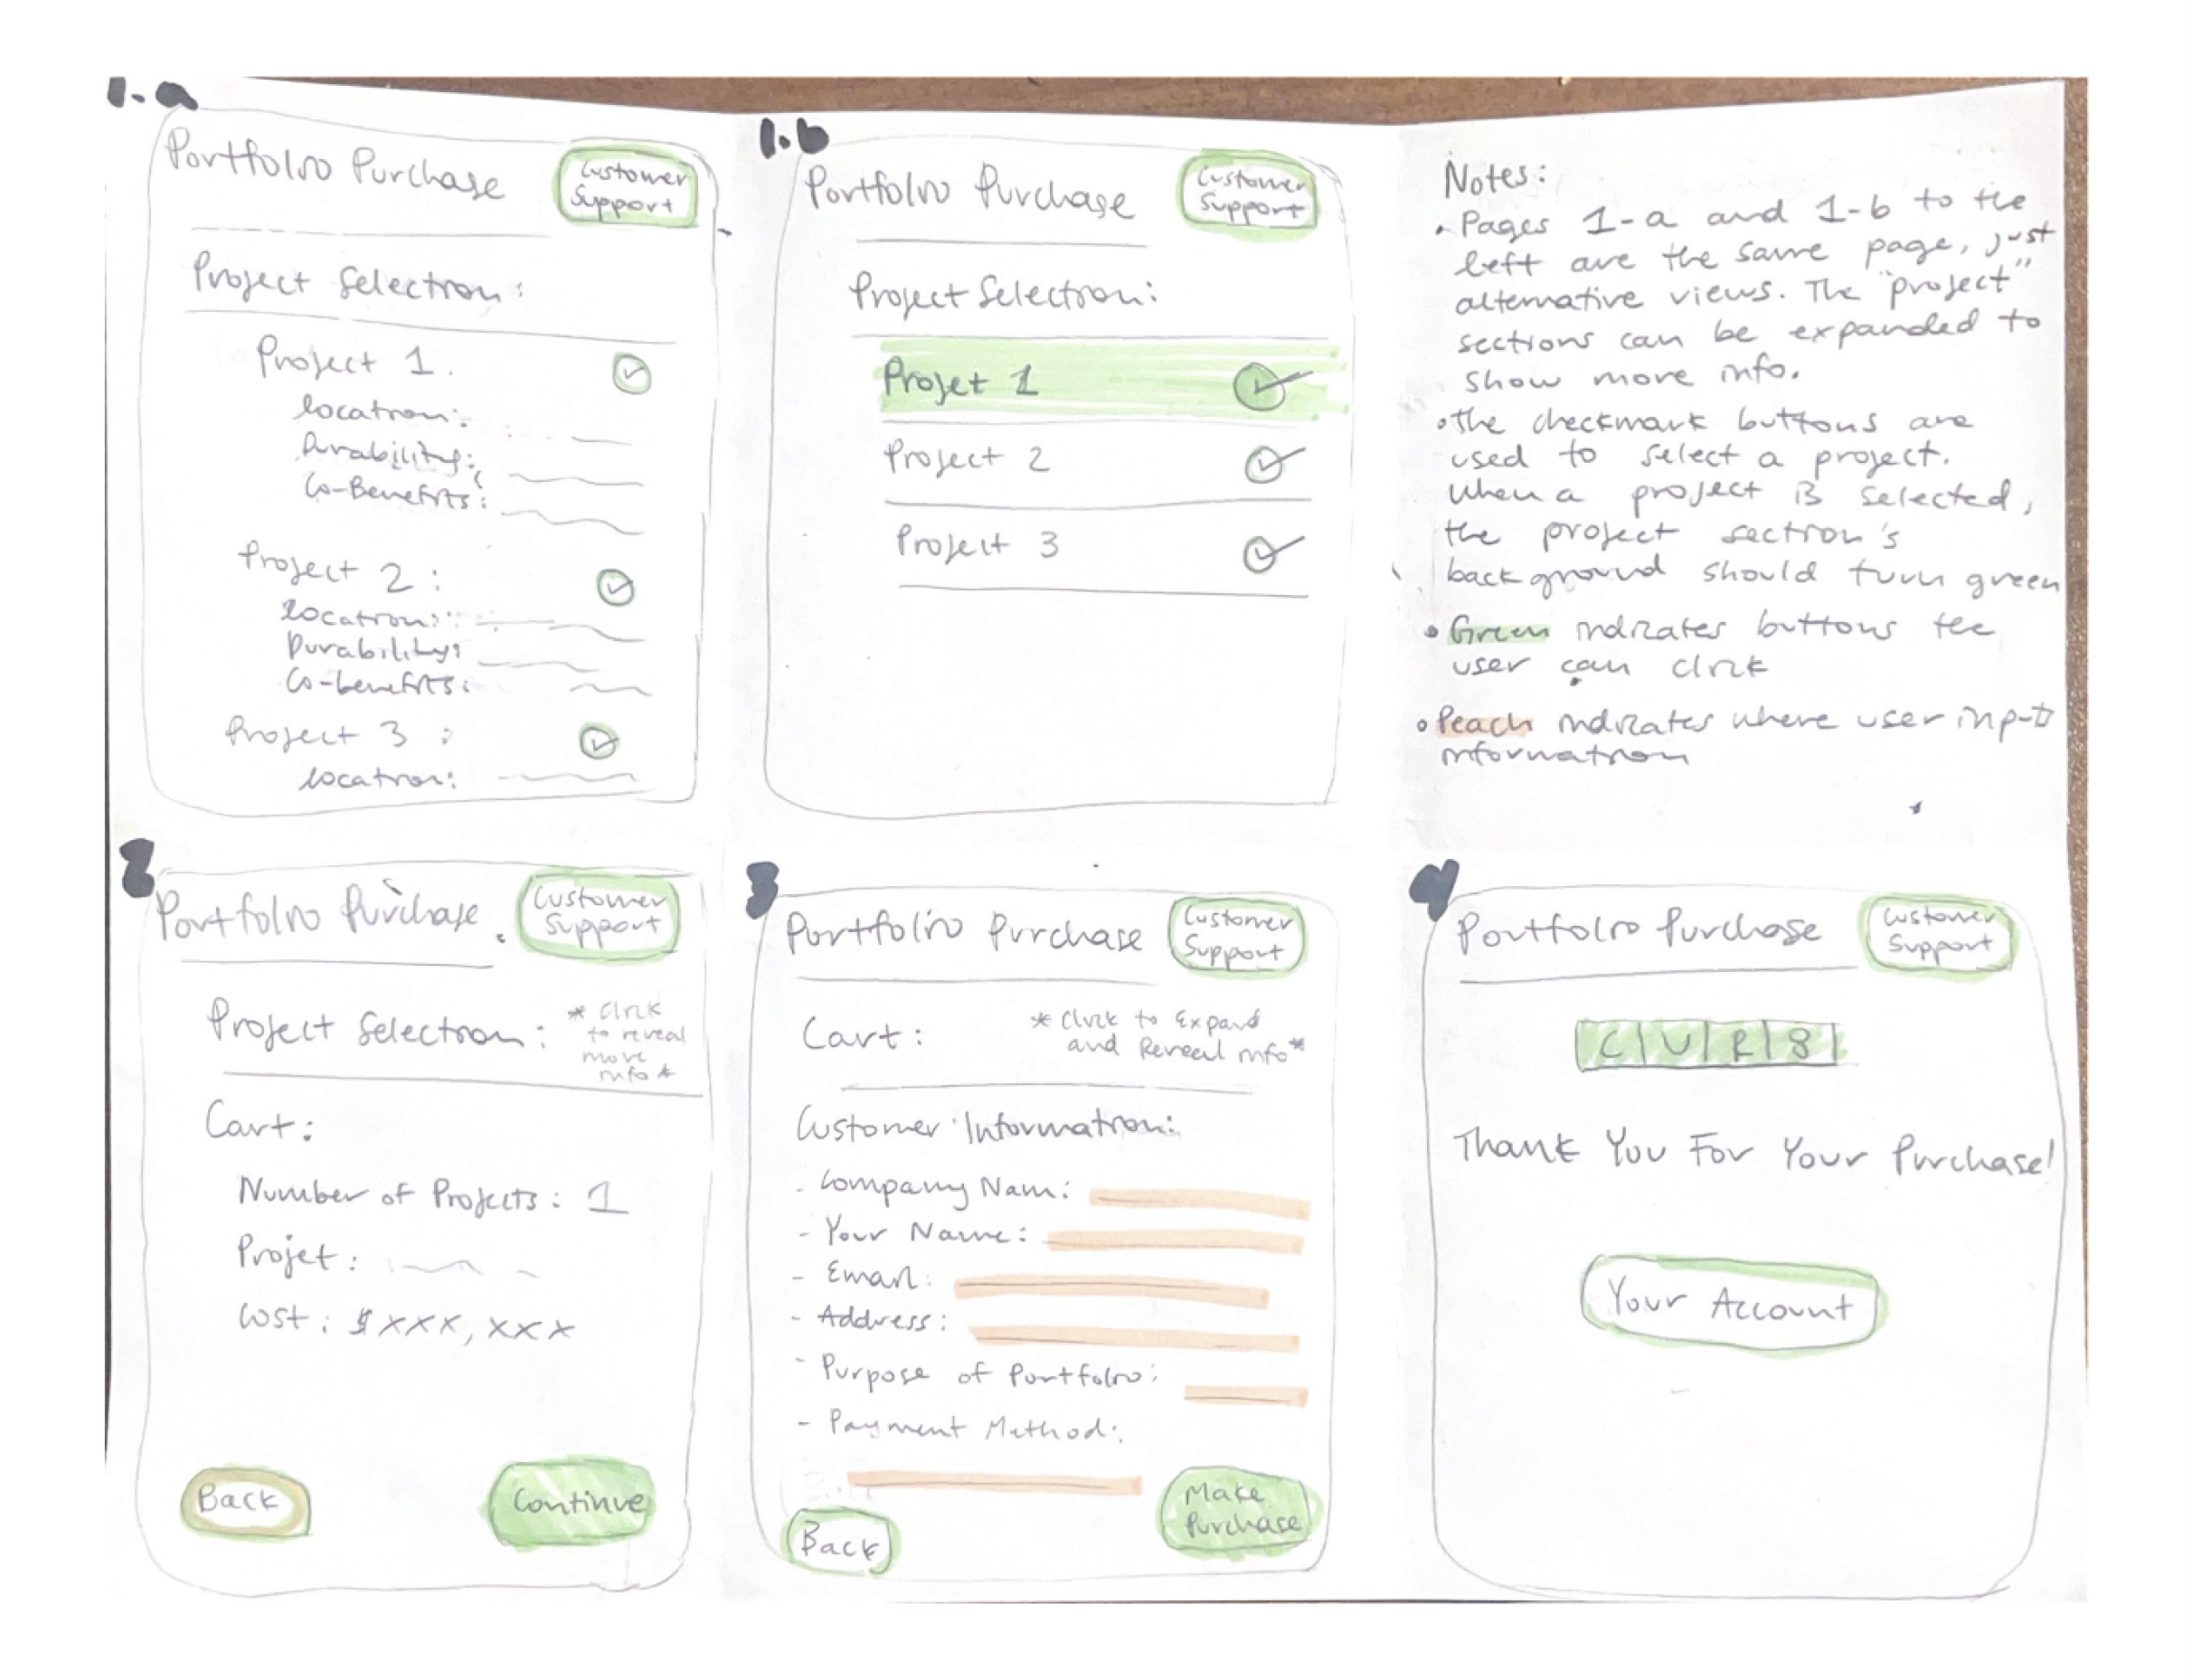 1.a
Portfolio Purchase
Customer
Support
Project Selection:
Project 1.
location:
Durability:
Co-Benefits:
Project 2:
Location:
Durability:
Co-benefits:
Project 3:
location:
1.b
Portfolio Purchase
Customer
Support
Project Selection:
Projet 1
Project 2
Project 3
Notes:
• Pages 1-a and 1-b to the
left are the same page, just
alternative views. The "project"
sections can be expanded to
show more info.
• The checkmark buttons are
used to select a project.
When a project is selected,
the project section's
background should turn green
• Green indicates buttons the
user can click
• Peach indicates where user input
information
2
Portfolio Purchase
Customer
Support
Project Selection:
* Click
to reveal
more
info *
Cart:
Number of Projects: 1
Projet:
Cost: $xxx,xxx
Back
Continue
3
Portfolio Purchase
Customer
Support
Cart:
* Click to Expand
and Reveal info *
Customer Information:
- Company Nam:
- Your Name:
- Email:
- Address:
- Purpose of Portfolio:
- Payment Method:
Back
Make
Purchase
4
Portfolio Purchase
Customer
Support
C|U|R|8|
Thank You For Your Purchase!
Your Account